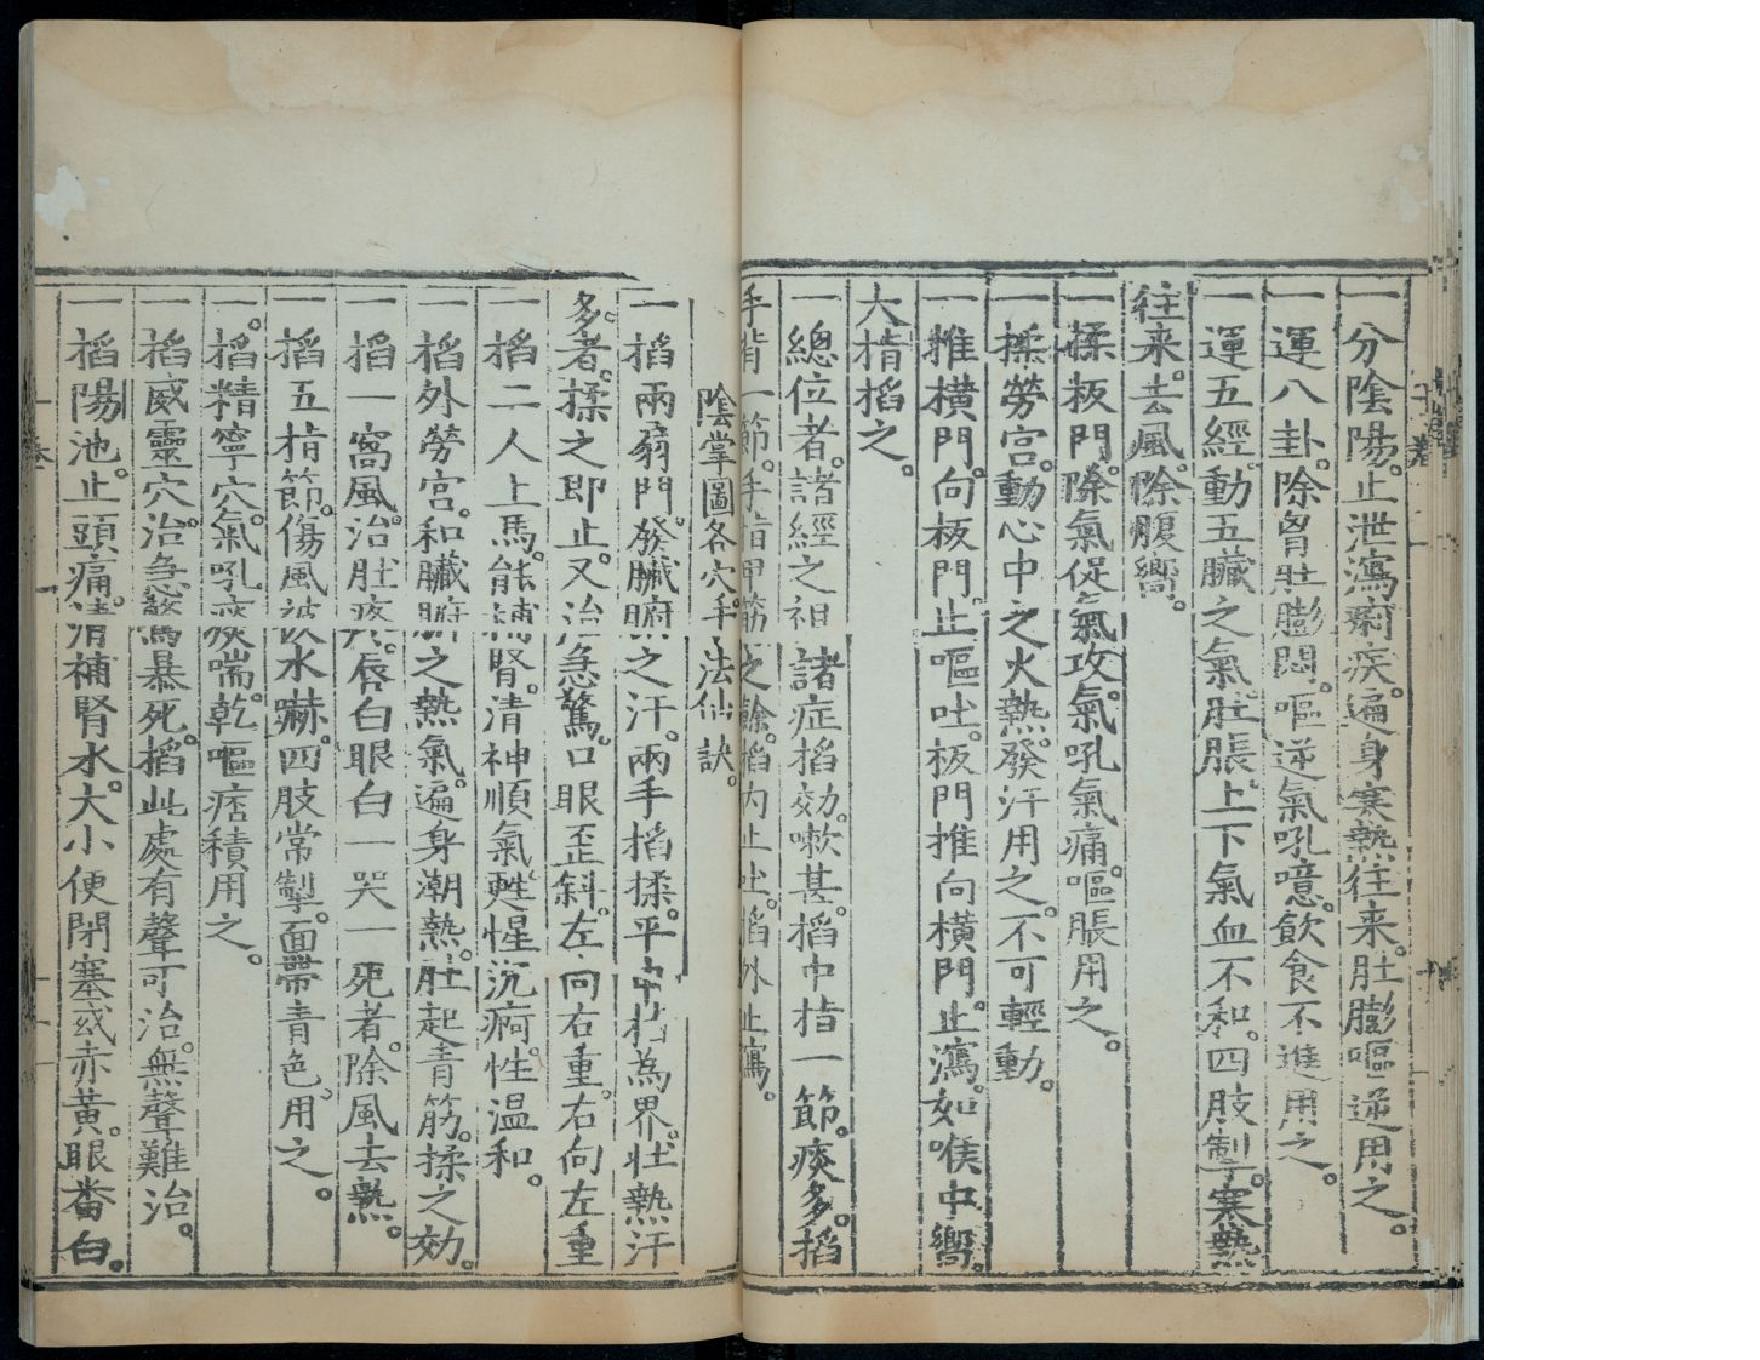 一分陰陽。止泄瀉痢疾。遍身寒熱往来。肚膨嘔逆用之。
一運八卦。除胷肚膨悶。嘔逆氣吼噫。飲食不進用之。
一運五經。動五臟之氣。肚脹。上下氣血不和。四肢掣。寒熱
往来。去風。除腹嚮。
一揉板門。除氣促氣攻。氣吼氣痛。嘔脹用之。
一揉勞宮。動心中之火熱。發汗用之。不可輕動。
一推横門。向板門。止嘔吐。板門推向横門。止瀉。如喉中嚮。
大指掐之。
一總位者。諸經之祖 諸症掐効。嗽甚。掐中指一節。痰多。掐
手背一節。手指甲筋之餘。掐内止吐。掐外止瀉。
陰掌圖各穴手法仙訣。
一掐兩扇門。發臟腑之汗。兩手掐揉。平中指為界。壮熱汗
多者。揉之即止。又治急驚。口眼歪斜。左向右重。右向左重
一掐二人上馬。能補腎。清神順氣。甦惺沉痾。性温和。
一掐外勞宮。和臟腑之熱氣。遍身潮熱。肚起青筋。揉之効。
一掐一窩風。治肚疼。唇白眼白一哭一死者。除風去熱。
一掐五指節。傷風被水嚇。四肢常掣。面帶青色。用之。
一。掐精寧穴。氣吼痰喘。乾嘔痞積用之。
一掐威靈穴。治急驚暴死。掐此處有聲可治。無聲難治。
一掐陽池。止頭痛。清補腎水。大小便閉塞或赤黄。眼番白。